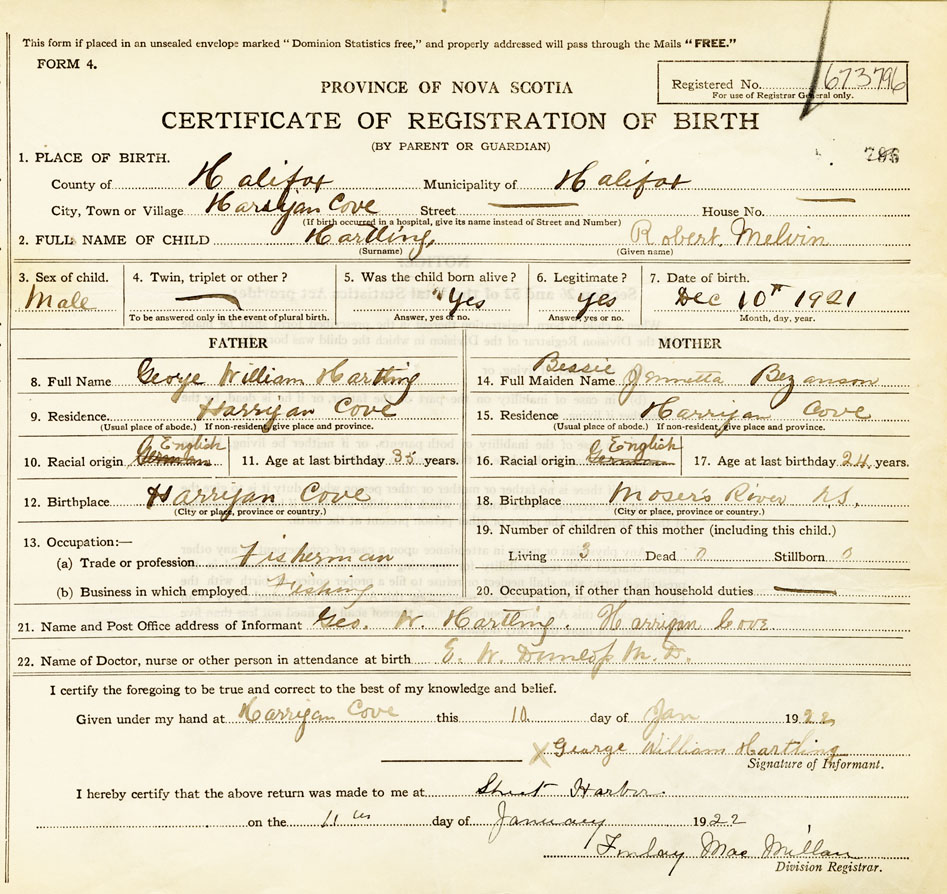 This form if placed in an unsealed envelope marked "Dominion Statistics free," and properly addressed will pass through the Mails "FREE."
FORM 4.
PROVINCE OF NOVA SCOTIA
Registered No. 673796
For use of Registrar General only.
CERTIFICATE OF REGISTRATION OF BIRTH
(BY PARENT OR GUARDIAN)
796
1. PLACE OF BIRTH.
County of Halifax Municipality of Halifax
City, Town or Village Harrigan Cove Street — House No. —
(If birth occurred in a hospital, give its name instead of Street and Number)
2. FULL NAME OF CHILD Hartling, Robert Melvin
(Surname) (Given name)
3. Sex of child. 4. Twin, triplet or other? 5. Was the child born alive? 6. Legitimate? 7. Date of birth.
Male — Yes yes Dec 10th 1921
To be answered only in the event of plural birth. Answer, yes or no. Answer, yes or no. Month, day, year.
FATHER MOTHER
8. Full Name George William Hartling
9. Residence Harrigan Cove
(Usual place of abode.) If non-resident, give place and province.
10. Racial origin German English 11. Age at last birthday 35 years.
12. Birthplace Harrigan Cove
(City or place, province or country.)
13. Occupation:—
(a) Trade or profession Fisherman
(b) Business in which employed Fishing
14. Full Maiden Name Bessie Jennetta Bezanson
15. Residence Harrigan Cove
(Usual place of abode.) If non-resident, give place and province.
16. Racial origin German English 17. Age at last birthday 24 years.
18. Birthplace Moser's River N.S.
(City or place, province or country.)
19. Number of children of this mother (including this child.)
Living 3 Dead 0 Stillborn 0
20. Occupation, if other than household duties —
21. Name and Post Office address of Informant Geo. W. Hartling. Harrigan Cove
22. Name of Doctor, nurse or other person in attendance at birth E. W. Dunlop M. D.
I certify the foregoing to be true and correct to the best of my knowledge and belief.
Given under my hand at Harrigan Cove this 10. day of Jan 1922
X George William Hartling
Signature of Informant.
I hereby certify that the above return was made to me at Sheet Harbor.
on the 11th day of January 1922
Finlay MacMillan
Division Registrar.